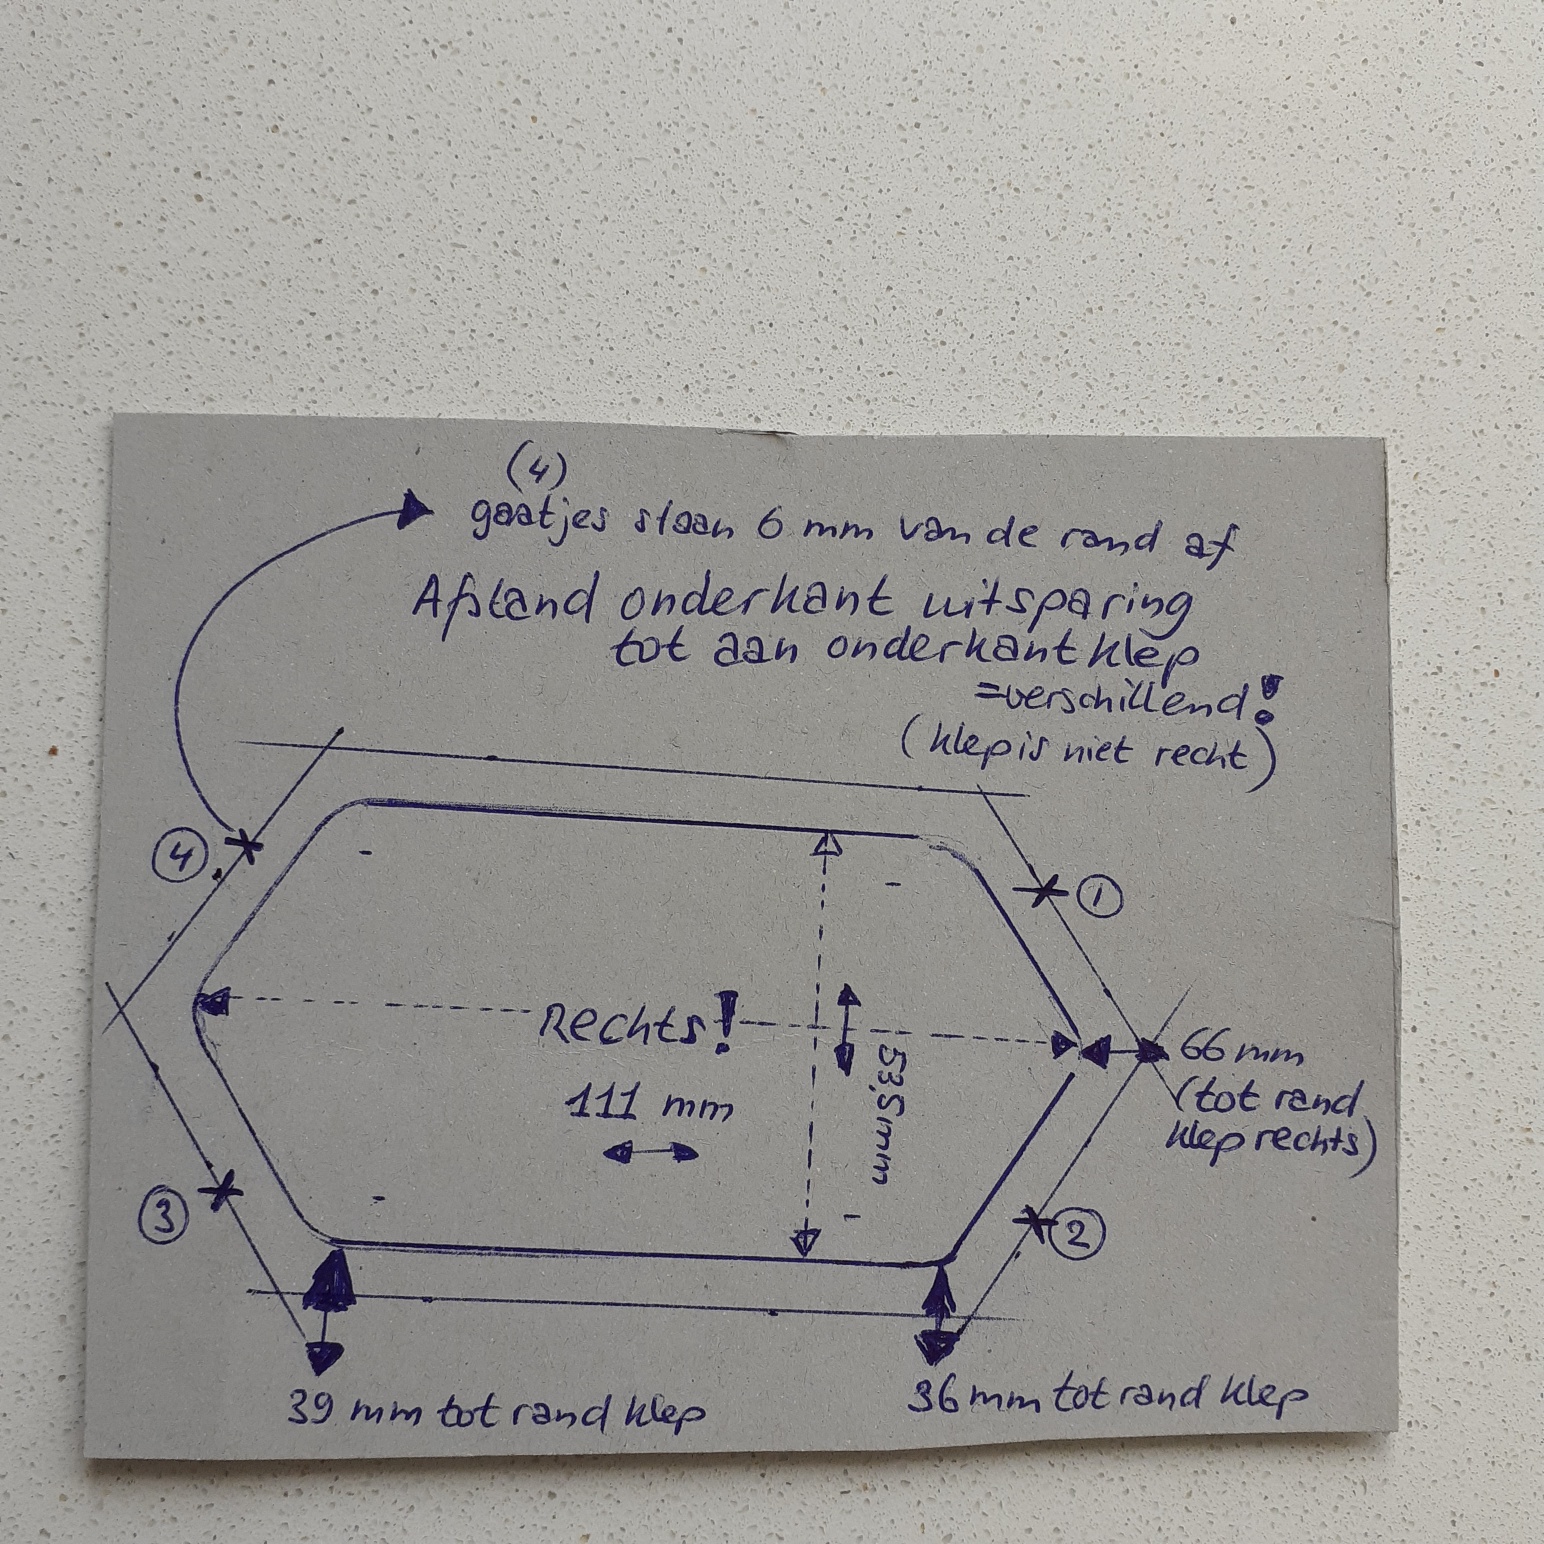 (4)
gaatjes slaan 6 mm van de rand af
Afstand onderkant uitsparing
tot aan onderkant klep
=verschillend!
(klep is niet recht)
4
1
Rechts!
111 mm
53,5mm
66 mm
(tot rand
klep rechts)
3
2
39 mm tot rand klep
36 mm tot rand klep